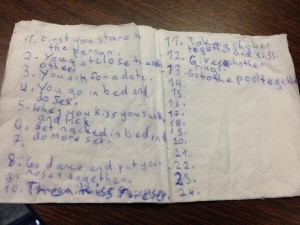 1. First you stare at
the person.
2. You get close to each
other
3. You ask for a date.
4. You go in bed and
do sex.
5. When you kiss you suck
and lick
6. Get naked in bed and
7. do more sex.
8. Go dance and put you
9. noses together.
10.
11. Take a shower
together and kiss.
12. Give
rings.
13. Go to the pool together
14.
15.
16.
17.
18.
19.
20.
21.
22.
23.
24.